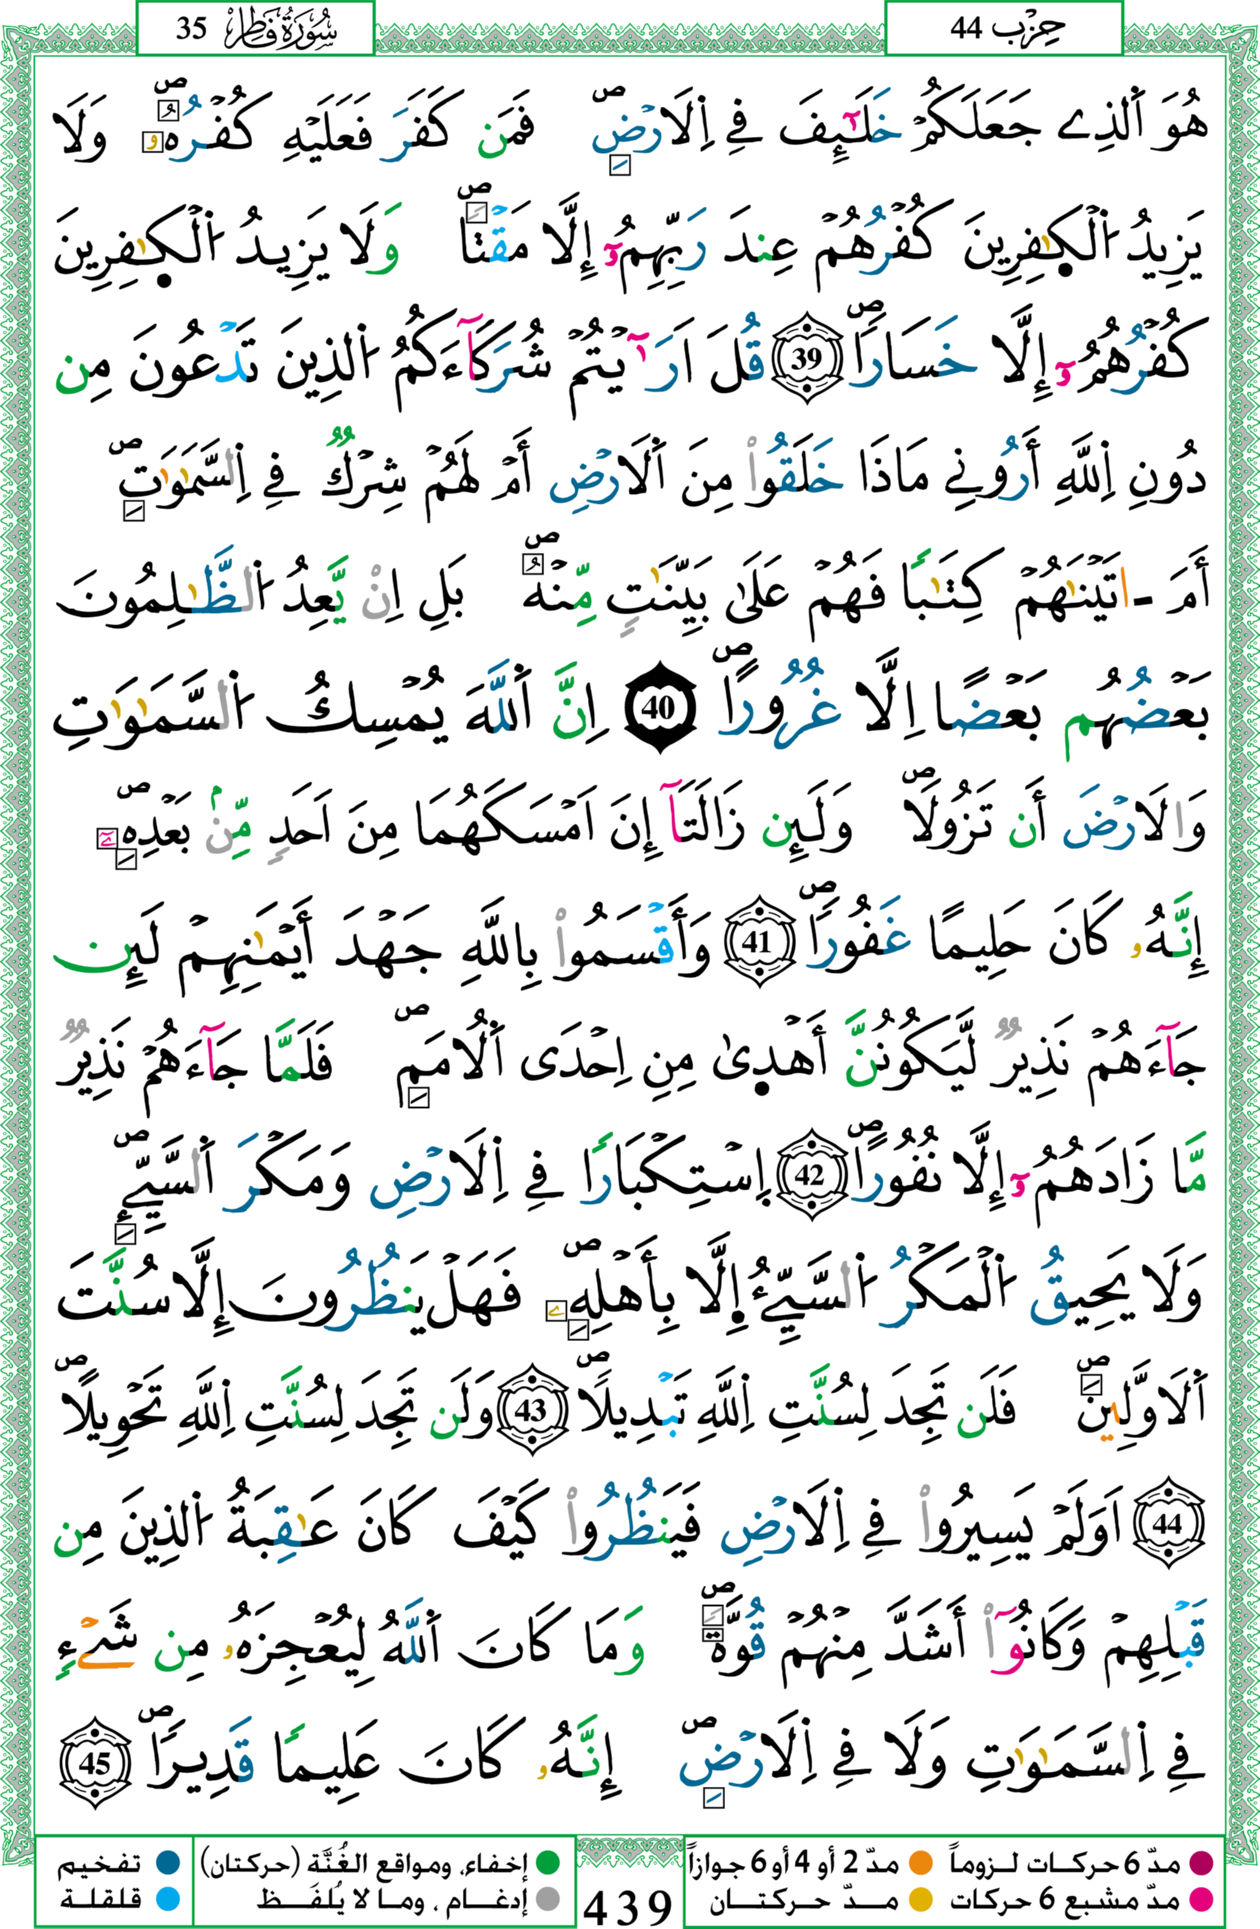 سُورَةُ فَاطِر 35
حِزْب 44
هُوَ اَ۬لذِے جَعَلَكُمْ خَلَٰٓئِفَ فِے اِ۬لَارْضِۖ فَمَن كَفَرَ فَعَلَيْهِ كُفْرُهُۥۖ وَلَا
يَزِيدُ اُ۬لْكٰ۪فِرِينَ كُفْرُهُمْ عِندَ رَبِّهِمُۥٓ إِلَّا مَقْتاٗۖ وَلَا يَزِيدُ اُ۬لْكٰ۪فِرِينَ
كُفْرُهُمُۥٓ إِلَّا خَسَاراٗۖ 39 قُلَ اَرَٰٓيْتُمْ شُرَكَآءَكُمُ اُ۬لذِينَ تَدْعُونَ مِن
دُونِ اِ۬للَّهِ أَرُونِے مَاذَا خَلَقُواْ مِنَ اَ۬لَارْضِ أَمْ لَهُمْ شِرْكٞ فِے اِ۬لسَّمَٰوَٰتِۖ
أَمَ ـ اتَيْنَٰهُمْ كِتَٰباٗ فَهُمْ عَلَىٰ بَيِّنَٰتٖ مِّنْهُۖ بَلِ اِنْ يَّعِدُ اُ۬لظَّٰلِمُونَ
بَعْضُهُم بَعْضاً اِلَّا غُرُوراًۖ 40 اِنَّ اَ۬للَّهَ يُمْسِكُ اُ۬لسَّمَٰوَٰتِ
وَالَارْضَ أَن تَزُولَاۖ وَلَئِن زَالَتَآ إِنَ اَمْسَكَهُمَا مِنَ اَحَدٖ مِّنۢ بَعْدِهِۦٓۖ
إِنَّهُۥ كَانَ حَلِيماً غَفُوراٗۖ 41 وَأَقْسَمُواْ بِاللَّهِ جَهْدَ أَيْمَٰنِهِمْ لَئِن
جَآءَهُمْ نَذِيرٞ لَّيَكُونُنَّ أَهْد۪ىٰ مِنِ اِحْدَى اَ۬لُامَمِۖ فَلَمَّا جَآءَهُمْ نَذِيرٞ
مَّا زَادَهُمُۥٓ إِلَّا نُفُوراًۖ 42 اِ۪سْتِكْبَاراٗ فِے اِ۬لَارْضِ وَمَكْرَ اَ۬لسَّيِّےِٕۖ
وَلَا يَحِيقُ اُ۬لْمَكْرُ اُ۬لسَّيِّےُٕ اِ۪لَّا بِأَهْلِهِۦۖ فَهَلْ يَنظُرُونَ إِلَّا سُنَّتَ
اَ۬لَاوَّلِينَۖ فَلَن تَجِدَ لِسُنَّتِ اِ۬للَّهِ تَبْدِيلاٗۖ 43 وَلَن تَجِدَ لِسُنَّتِ اِ۬للَّهِ تَحْوِيلاًۖ
44 اَوَلَمْ يَسِيرُواْ فِے اِ۬لَارْضِ فَيَنظُرُواْ كَيْفَ كَانَ عَٰقِبَةُ اُ۬لذِينَ مِن
قَبْلِهِمْ وَكَانُوٓاْ أَشَدَّ مِنْهُمْ قُوَّةٗۖ وَمَا كَانَ اَ۬للَّهُ لِيُعْجِزَهُۥ مِن شَےْءٖ
فِے اِ۬لسَّمَٰوَٰتِ وَلَا فِے اِ۬لَارْضِۖ إِنَّهُۥ كَانَ عَلِيماٗ قَدِيراٗۖ 45
مدّ 6 حركات لـزوماً مدّ 2 أو 4 أو 6 جوازاً إخفاء، ومواقع الغُنَّة (حركتان) تفخيم
مدّ مشبع 6 حركات مـدّ حـركتـان إدغـام ، ومـا لا يُلفَـظ قلقلة
439